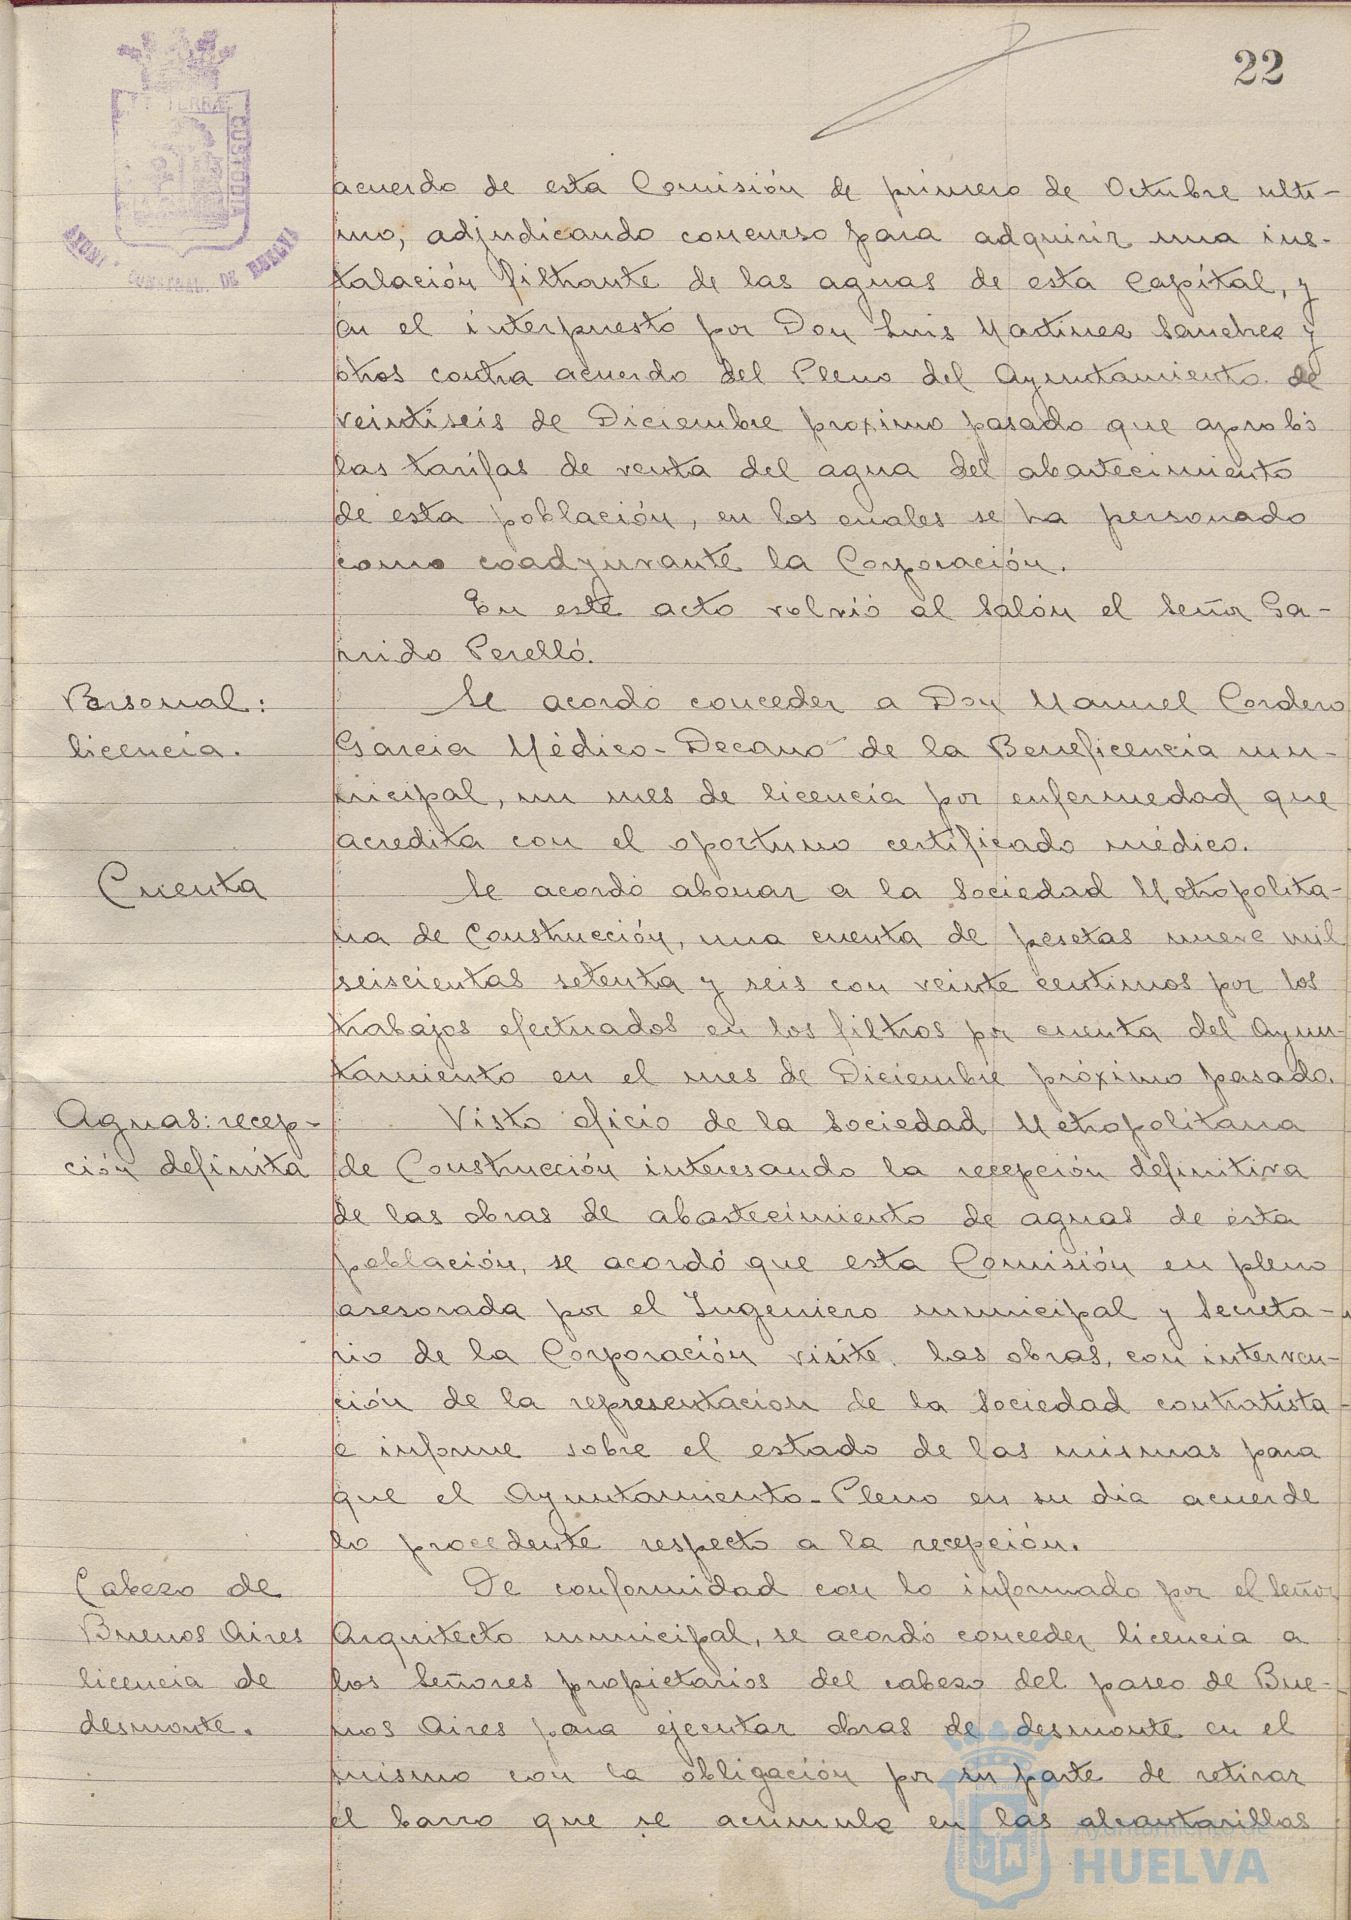 22
TERRÆ
CUSTODIA
DE HUELVA
acuerdo de esta Comisión de primero de Octubre ulti-
mo, adjudicando concurso para adquirir una ins-
talación filtrante de las aguas de esta Capital, y
en el interpuesto por Don Luis Martinez Sanchez y
otros contra acuerdo del Pleno del Ayuntamiento de
veintiseis de Diciembre proximo pasado que aprobó
las tarifas de venta del agua del abastecimiento
de esta población, en los cuales se ha personado
como coadyuvante la Corporación.
En este acto volvió al Salón el Señor Ga-
rrido Perelló.
Personal:
licencia.
Se acordó conceder a Don Manuel Cordero
Garcia Médico-Decano de la Beneficencia mu-
nicipal, un mes de licencia por enfermedad que
acredita con el oportuno certificado médico.
Cuenta
Se acordó abonar a la Sociedad Metropolita-
na de Construcción, una cuenta de pesetas nueve mil
seiscientas setenta y seis con veinte centimos por los
trabajos efectuados en los filtros por cuenta del Ayun-
tamiento en el mes de Diciembre próximo pasado.
Aguas: recep-
ción definita
Visto oficio de la Sociedad Metropolitana
de Construcción interesando la recepción definitiva
de las obras de abastecimiento de aguas de esta
población, se acordó que esta Comisión en pleno
asesorada por el Ingeniero municipal y Secreta-
rio de la Corporación visite las obras, con interven-
ción de la representación de la Sociedad contratista
e informe sobre el estado de las mismas para
que el Ayuntamiento-Pleno en su dia acuerde
lo procedente respecto a la recepción.
Cabezo de
Buenos Aires
licencia de
desmonte.
De conformidad con lo informado por el Señor
Arquitecto municipal, se acordó conceder licencia a
los Señores propietarios del cabezo del paseo de Bue-
nos Aires para ejecutar obras de desmonte en el
mismo con la obligación por su parte de retirar
el barro que se acumule en las alcantarillas
Ayuntamiento de
HUELVA